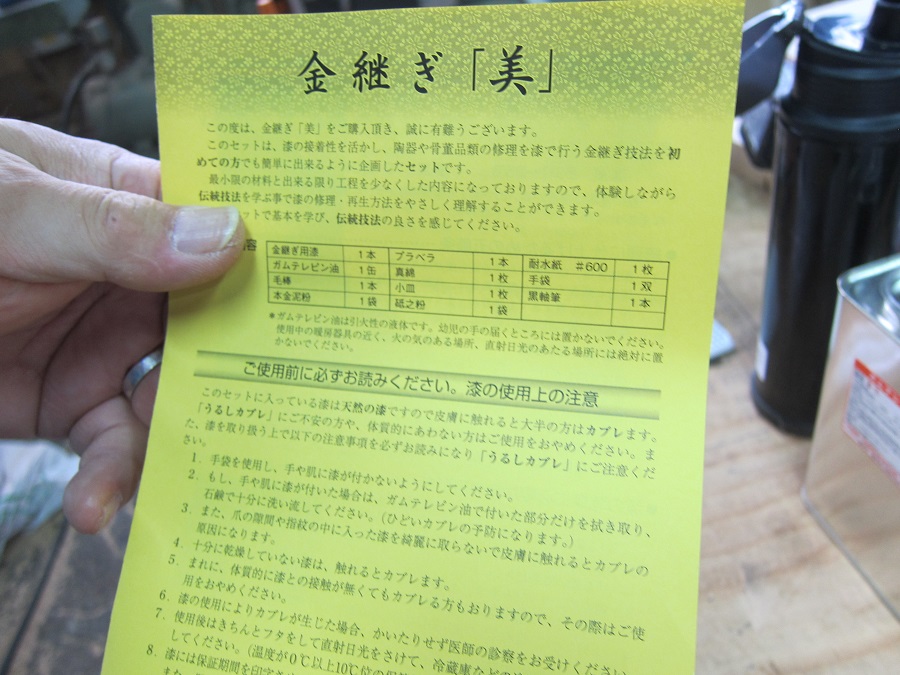 金継ぎ「美」
この度は、金継ぎ「美」をご購入頂き、誠に有難うございます。
このセットは、漆の接着性を活かし、陶器や骨董品類の修理を漆で行う金継ぎ技法を初
めての方でも簡単に出来るように企画したセットです。
最小限の材料と出来る限り工程を少なくした内容になっておりますので、体験しながら
伝統技法を学ぶ事で漆の修理・再生方法をやさしく理解することができます。
ットで基本を学び、伝統技法の良さを感じてください。
容
金継ぎ用漆 1本 プラベラ 1本 耐水紙 #600 1枚
ガムテレピン油 1缶 真綿 1枚 手袋 1双
毛棒 1本 小皿 1枚 黒軸筆 1本
本金泥粉 1袋 砥之粉 1袋
*ガムテレピン油は引火性の液体です。幼児の手の届くところには置かないでください。
使用中の暖房器具の近く、火の気のある場所、直射日光のあたる場所には絶対に置
かないでください。
ご使用前に必ずお読みください。漆の使用上の注意
このセットに入っている漆は天然の漆ですので皮膚に触れると大半の方はカブレます。
「うるしカブレ」にご不安の方や、体質的にあわない方はご使用をおやめください。ま
た、漆を取り扱う上で以下の注意事項を必ずお読みになり「うるしカブレ」にご注意くだ
さい。
1. 手袋を使用し、手や肌に漆が付かないようにしてください。
2. もし、手や肌に漆が付いた場合は、ガムテレピン油で付いた部分だけを拭き取り、
石鹸で十分に洗い流してください。(ひどいカブレの予防になります。)
3. また、爪の隙間や指紋の中に入った漆を綺麗に取らないで皮膚に触れるとカブレの
原因になります。
4. 十分に乾燥していない漆は、触れるとカブレます。
5. まれに、体質的に漆との接触が無くてもカブレる方もおりますので、その際はご使
用をおやめください。
6. 漆の使用によりカブレが生じた場合、かいたりせず医師の診察をお受けください。
7. 使用後はきちんとフタをして直射日光をさけて、冷蔵庫など
してください。(温度が0℃以上10℃位の
8. 漆には保証期間を印字